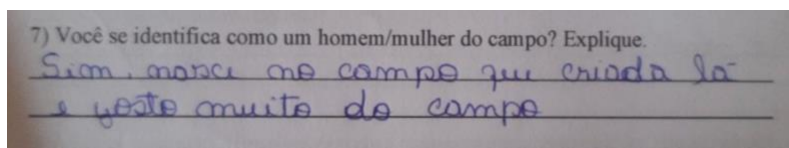 7) Você se identifica como um homem/mulher do campo? Explique.
Sim, nasci no campo qui criada lá
e gosto muito do campo